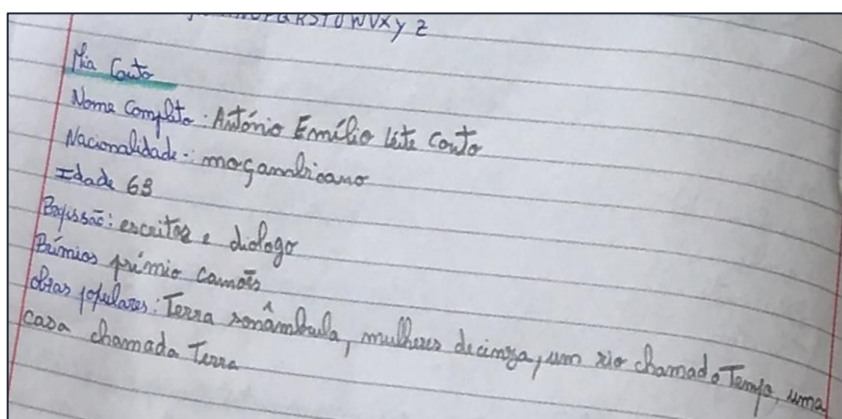 QRSTUWVXYZ
Mia Couto
Nome Completo: António Emílio Leite Couto
Nacionalidade: moçambicano
Idade 63
Profissão: escritor e diologo
Prêmios prêmio camões
obras populares: Terra sonâmbula, mulheres de cinza, um rio chamado Tempo, uma
casa chamada Terra